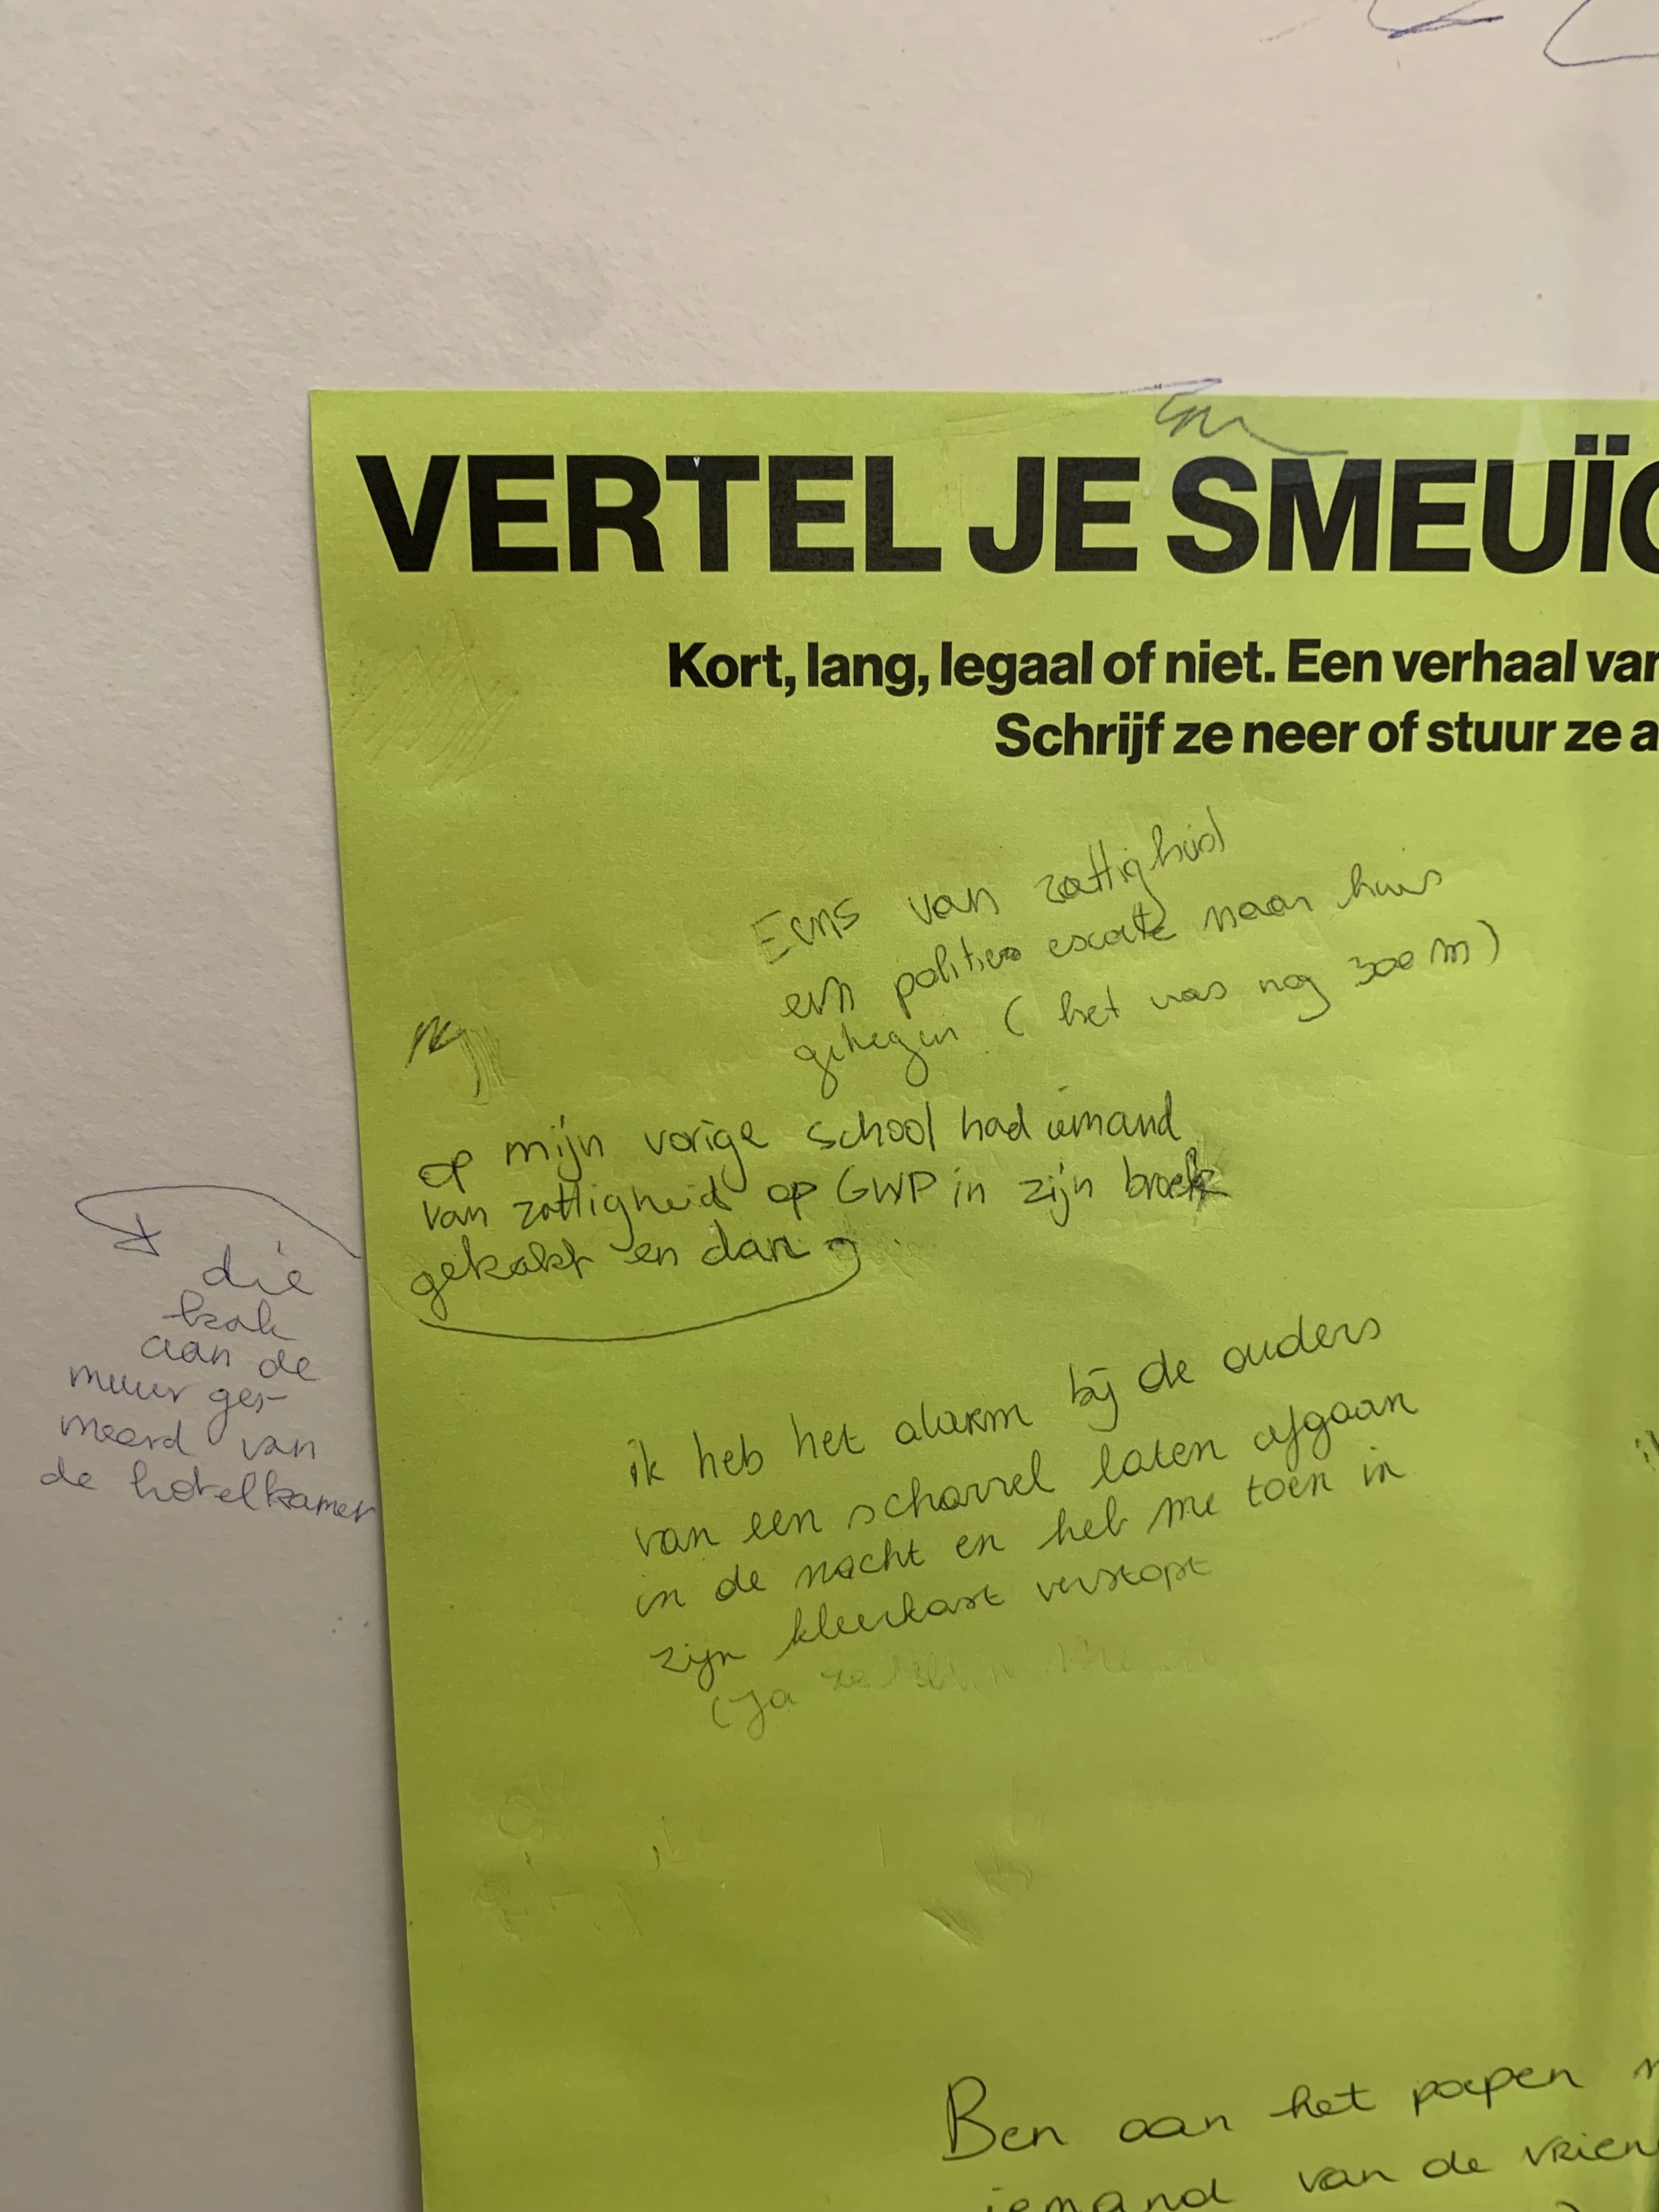 VERTEL JE SMEUÏG
Kort, lang, legaal of niet. Een verhaal van
Schrijf ze neer of stuur ze a
Eens van zattigheid
een politie escorte naar huis
gekregen (het was nog 300 m)
op mijn vorige school had iemand
van zattigheid op GWP in zijn broek
gekakt en dan
die
kak
aan de
muur ges-
meerd van
de hotelkamer
ik heb het alarm bij de ouders
van een scharrel laten afgaan
in de nacht en heb me toen in
zijn kleerkast verstopt
(Ja
Ben aan het poepen
iemand van de vrien